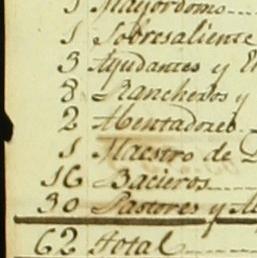 Mayordomo
1 Sobresaliente
3 Ayudantes y
8 Rancheros y
2 Ahentadores
1 Maestro de
16 Bacieros
30 Pastores y
62 Total